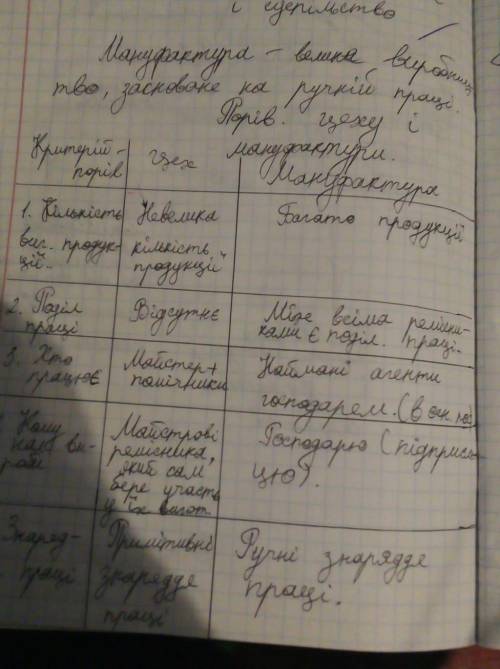 і суспільство
Мануфактура – велике виробниц
тво, засноване на ручній праці.
Порів. цеху і
мануфактури.
Критерій- порів
цех
Мануфактура
1. Кількість
виг. продук-
цій.
Невелика
кількість
продукцій
Багато продукцій
2. Поділ
праці
Відсутнє
Між всіма ремісни-
ками є поділ. праці.
3. Хто
працює
Майстер+
помічники
Наймані агенти
господарем.
Кому
виробі
Майстрові
ремісника,
який сам
бере участь
у їх вигот.
Господарю (підприєм-
цю).
Знаряд-
праці
Примітивні
знаряддя
праці
Ручні знаряддя
праці.